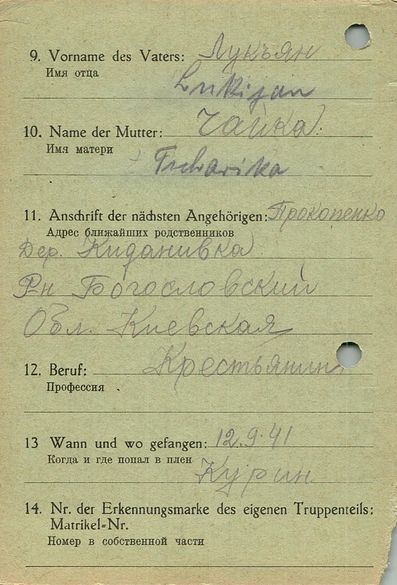 9. Vorname des Vaters: Лукъян
Имя отца
Lukijan
10. Name der Mutter: Чайка
Имя матери
Tscharika
11. Anschrift der nächsten Angehörigen: Прокопенко
Адрес ближайших родственников
Дер. Киданивка
Рн Богословский
Обл. Киевская
12. Beruf: Крестьянин
Профессия
13 Wann und wo gefangen: 12.9.41
Когда и где попал в плен
Курин
14. Nr. der Erkennungsmarke des eigenen Truppenteils:
Matrikel-Nr.
Номер в собственной части